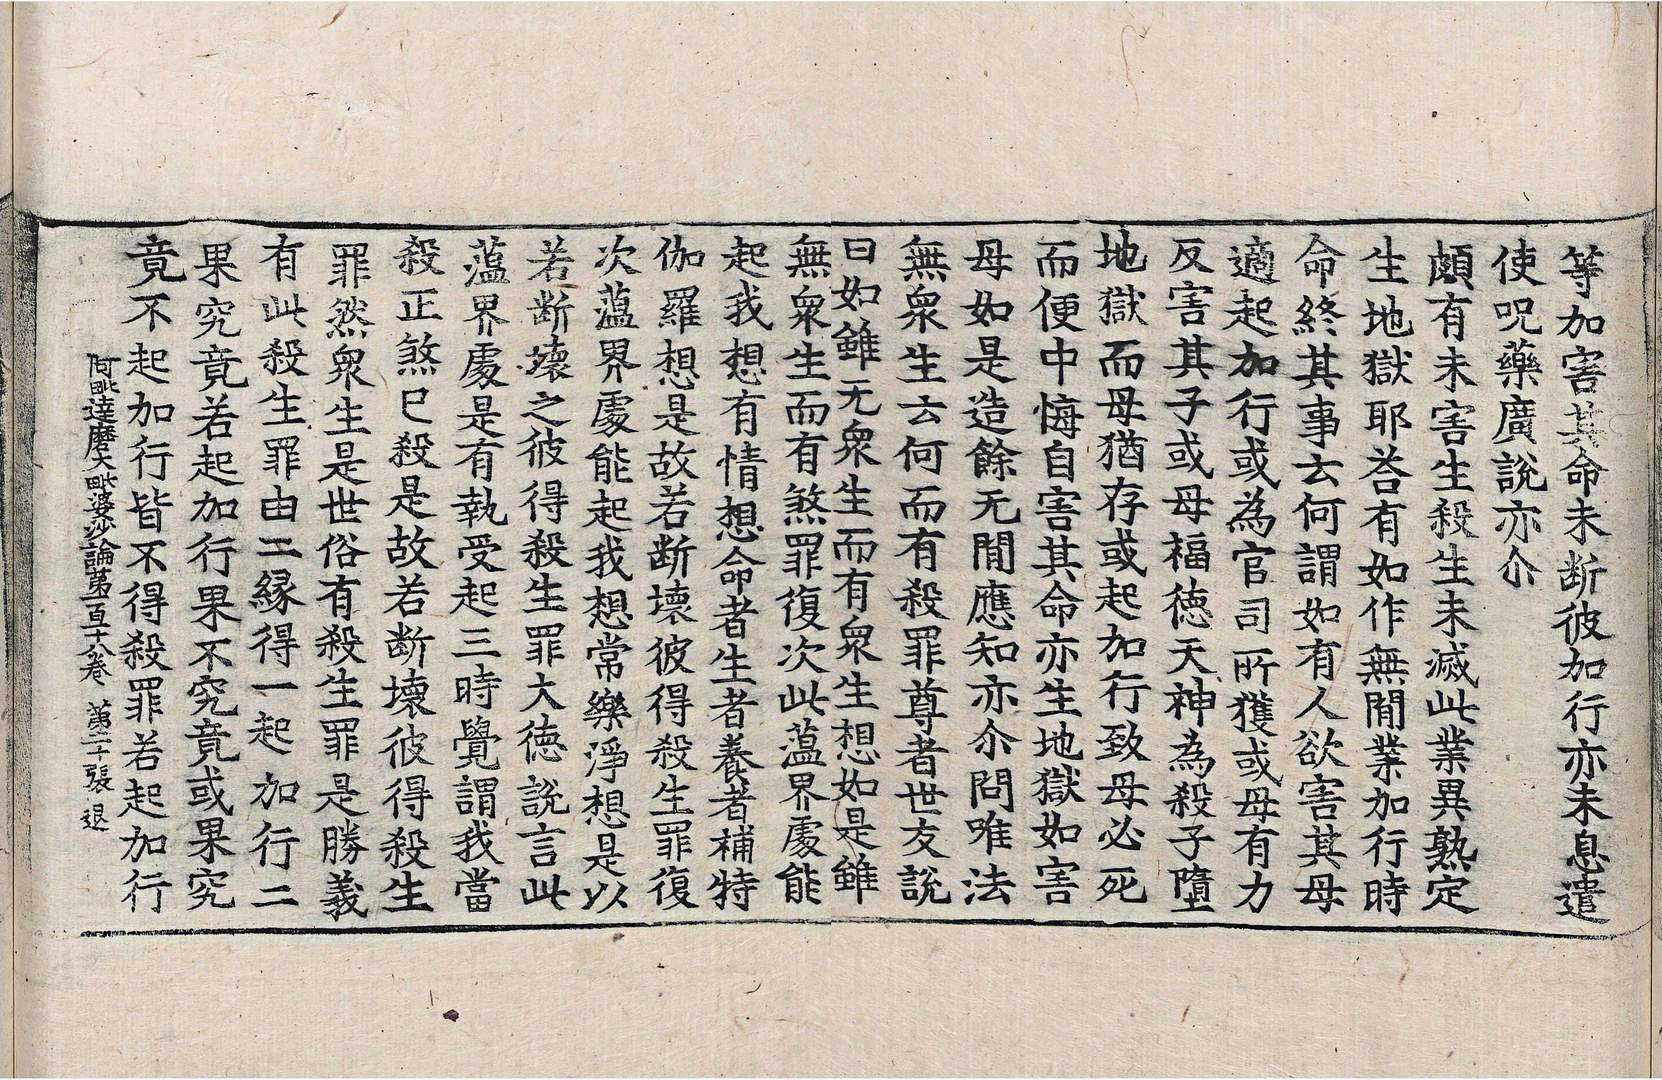 等加害其命未断彼加行亦未息遣
使呪藥廣說亦尒
頗有未害生殺生未滅此業異熟定
生地獄耶荅有如作無閒業加行時
命終其事云何謂如有人欲害其母
適起加行或為官司所獲或母有力
反害其子或母福德天神為殺子墮
地獄而母猶存或起加行致母必死
而便中悔自害其命亦生地獄如害
母如是造餘无閒應知亦尒問唯法
無衆生云何而有殺罪尊者世友說
曰如雖无衆生而有衆生想如是雖
無衆生而有煞罪復次此蘊界處能
起我想有情想命者生者養者補特
伽羅想是故若断壞彼得殺生罪復
次蘊界處能起我想常樂淨想是以
若断壞之彼得殺生罪大德說言此
蘊界處是有執受起三時覺謂我當
殺正煞已殺是故若断壞彼得殺生
罪然衆生是世俗有殺生罪是勝義
有此殺生罪由二緣得一起加行二
果究竟若起加行果不究竟或果究
竟不起加行皆不得殺罪若起加行
阿毗達磨大毗婆沙論苐一百十八卷　苐二十張　退